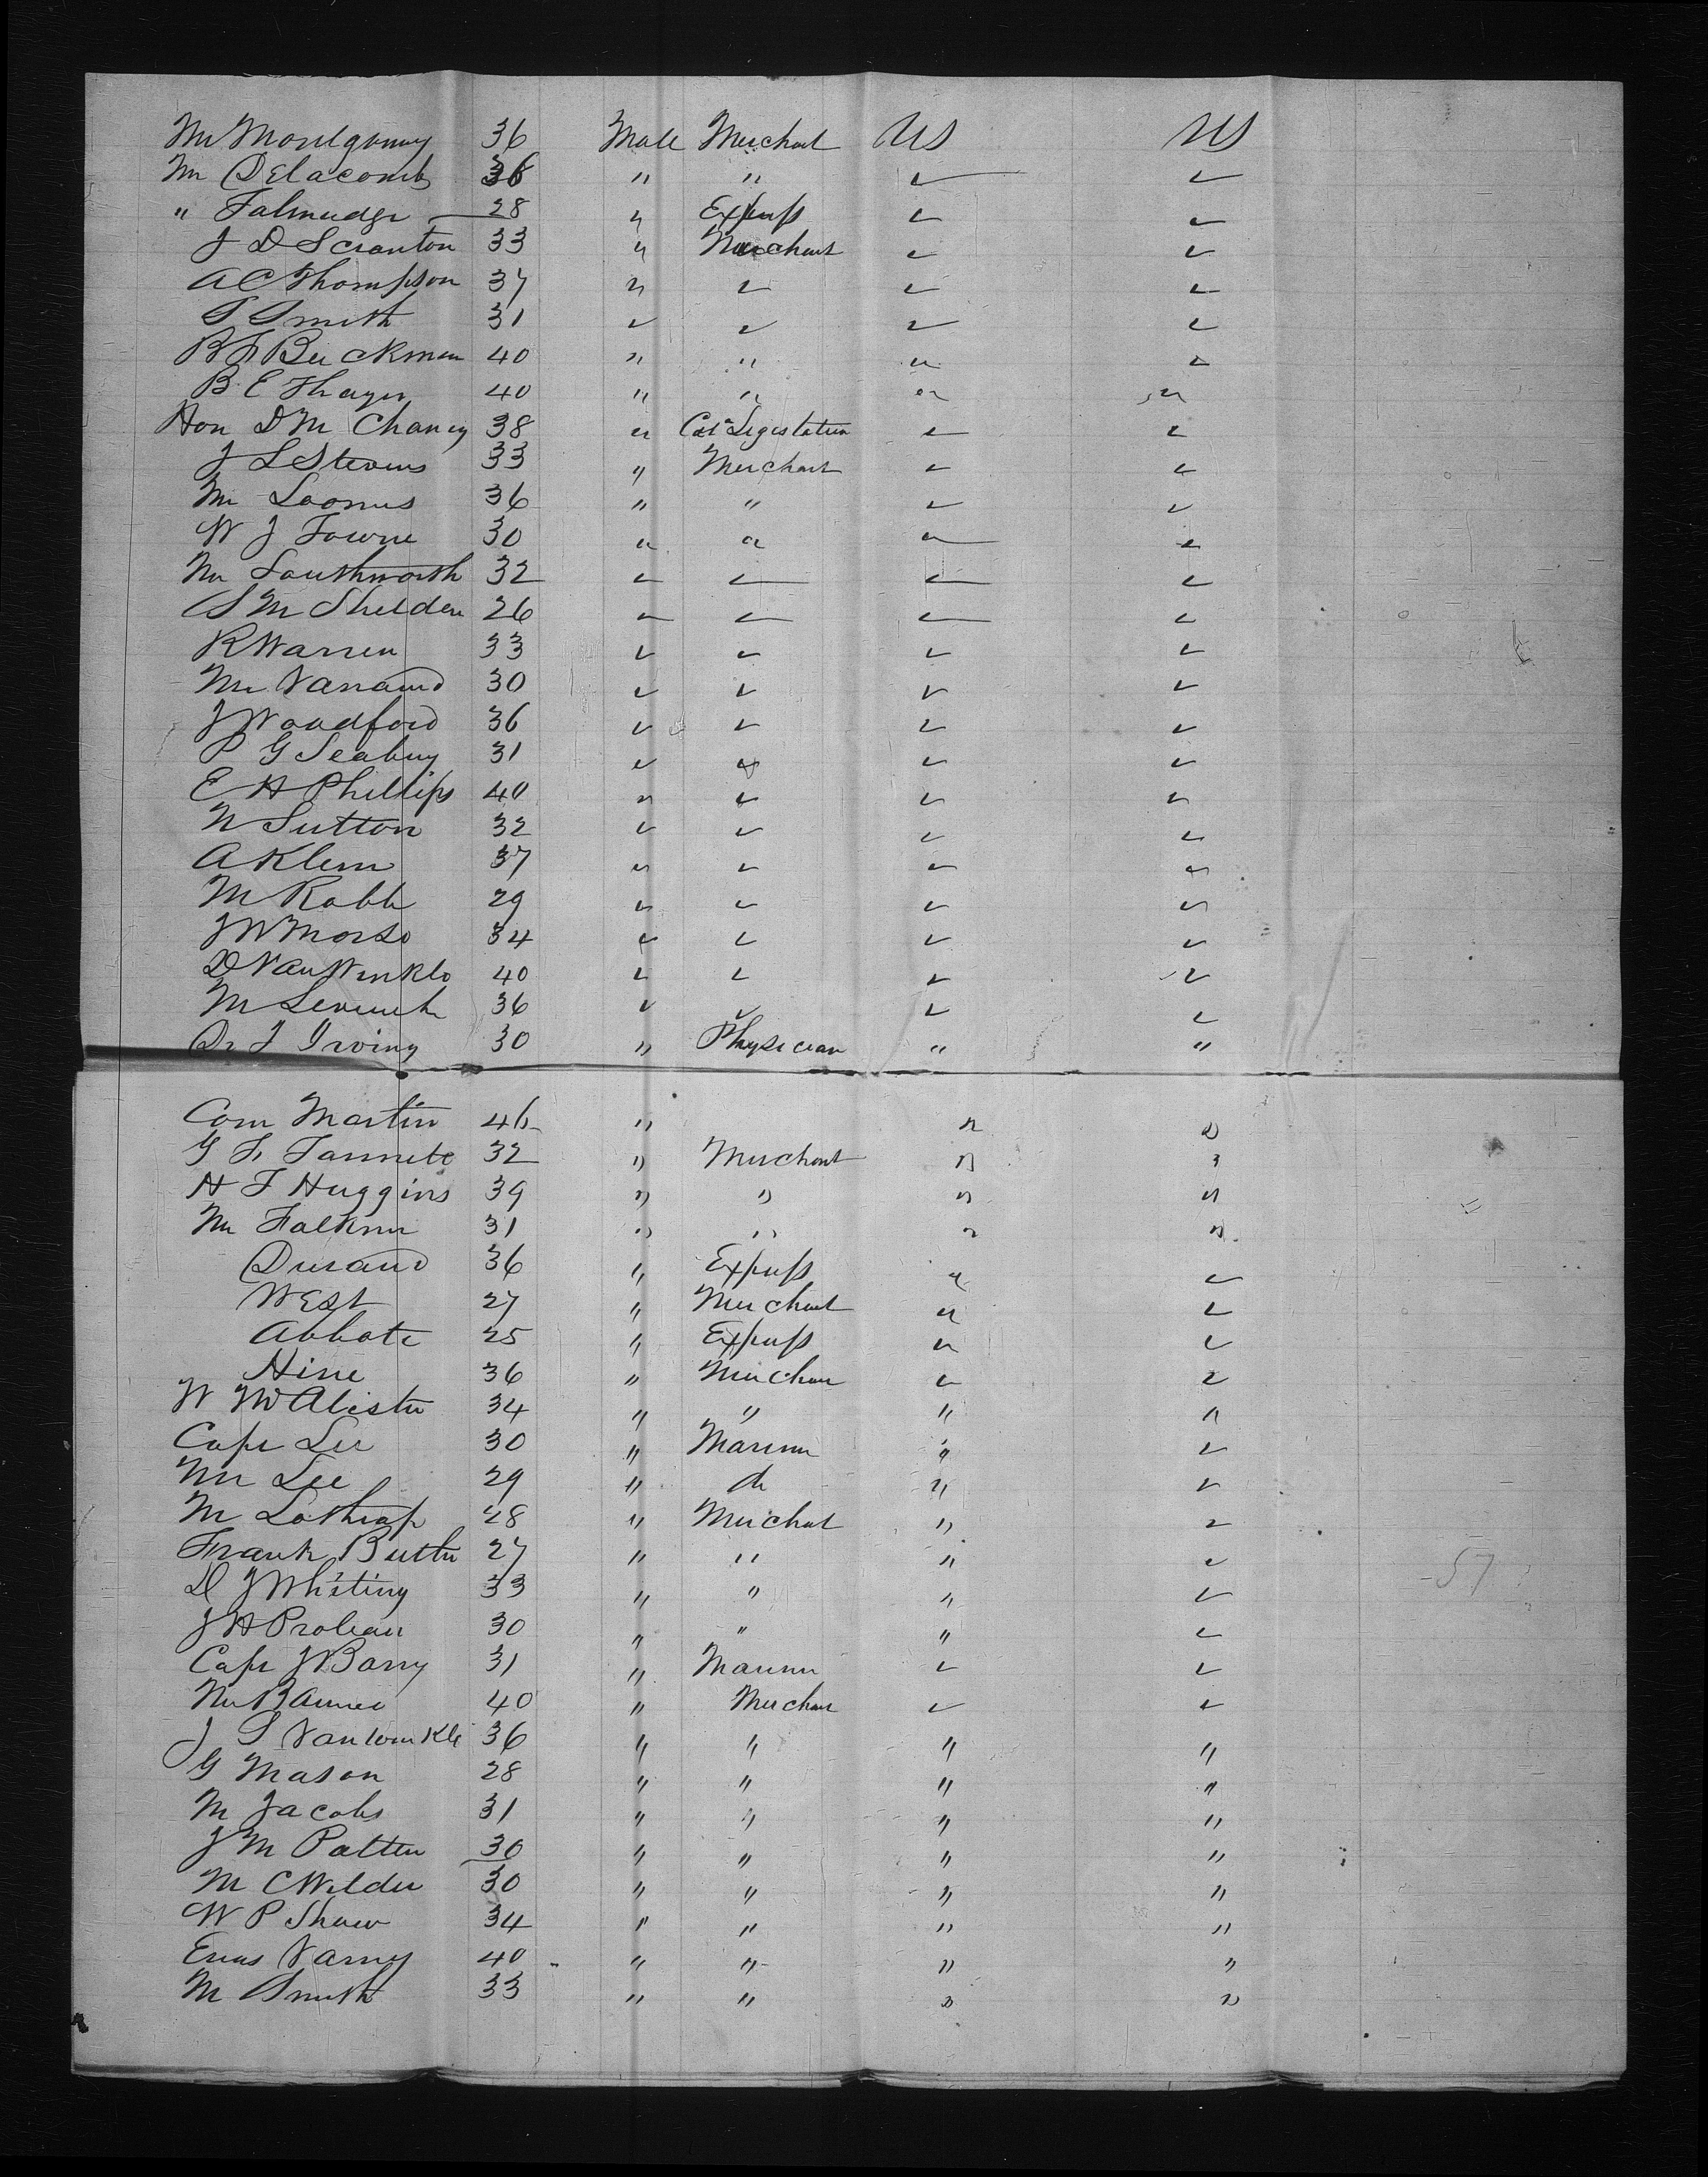 Mr Montgomery 36 Male Merchant US US
Mr Delacomb 36 " " " "
" Talmadge 28 " Express " "
J D Scranton 33 " Merchant " "
A C Thompson 37 " " " "
S Smith 31 " " " "
B F Buckman 40 " " " "
B E Thayer 40 " " " "
Hon D M Chaney 38 " Cal Legislature " "
J L Stevens 33 " Merchant " "
Mr Loomis 36 " " " "
W J Towne 30 " " " "
Mr Southworth 32 " " " "
S M Shelden 26 " " " "
R Warren 33 " " " "
Mr 30 " " " "
J Woodford 36 " " " "
P G Seabury 31 " " " "
E H Phillips 40 " " " "
N Sutton 32 " " " "
A Klem 37 " " " "
M Rabb 29 " " " "
J W Morse 34 " " " "
D Van Winkle 40 " " " "
M 36 " " " "
Dr F Irving 30 " Physician " "
Com Martin 46 " " "
G F 32 " Merchant " "
H F Huggins 39 " " " "
Mr Falkner 31 " " " "
Durand 36 " Express " "
West 27 " Merchant " "
Abbote 25 " Express " "
Hine 36 " Merchan " "
W McAlister 34 " " " "
Capt Lee 30 " Mariner " "
Mr Lee 29 " do " "
M Lothrop 28 " Merchant " "
Frank Butler 27 " " " "
D J Whiting 33 " " " "
J H 30 " " " "
Capt J W Barry 31 " Mariner " "
Mr Barnes 40 " Merchan " "
J S Vanwinkle 36 " " " "
G Mason 28 " " " "
M Jacobs 31 " " " "
J M Patten 30 " " " "
M C Wilder 30 " " " "
W P Shaw 34 " " " "
Enas Varney 40 " " " "
M Smith 33 " " " "
57